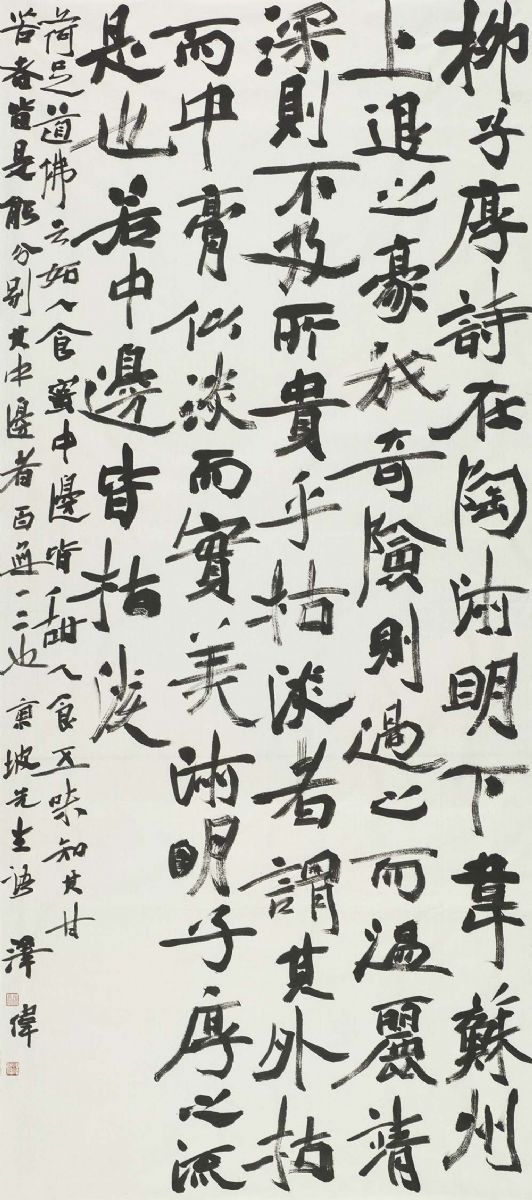 柳子厚詩在陶淵明下韋蘇州
上退之豪放奇險則過之而溫麗靖
深則不及所貴乎枯淡者謂其外枯
而中膏似淡而實美淵明子厚之流
是也若中邊皆枯淡
荷足道佛云如人食蜜中邊皆甜人食五味知其甘
苦者皆是能分別其中邊者百無一二也 東坡先生語 澤偉